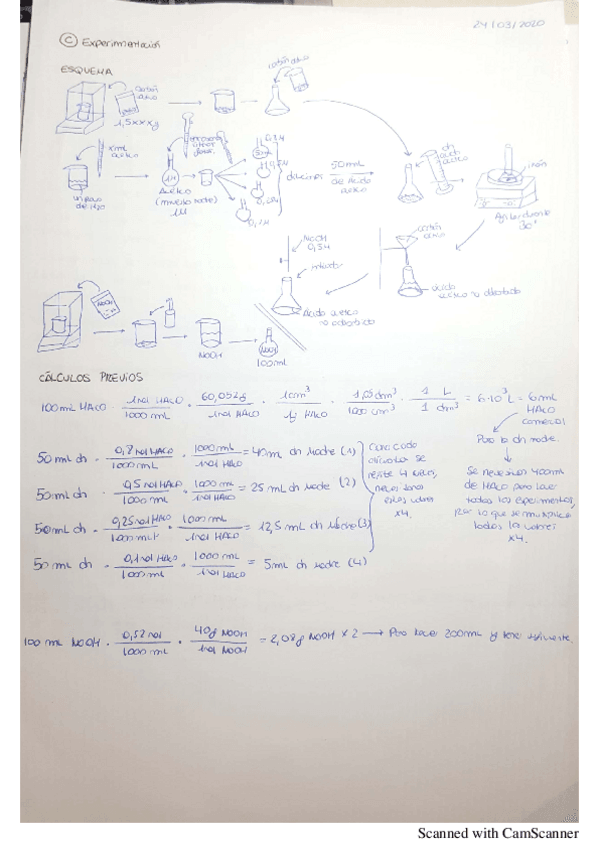 24/03/2020
C Experimentación
ESQUEMA
carbón activo
carbón activo
1,5xxxx g
xmL acético
un poco de H2O
1M
Acético
(muestra madre)
1M
0,8M
0,5M
0,1M
50mL
de ácido acético
ch ácido acético
imán
Agitar durante
30'
NaOH
0,5M
carbón activo
ácido acético no adsorbido
Ácido acético no adsorbido
NaOH
NaOH
NaOH
100mL
CÁLCULOS PREVIOS
100mL HAcO · 1mol HAcO / 1000 mL · 60,052g / 1mol HAcO · 1cm³ / g HAcO · 1,05 dm³ / 1000 cm³ · 1 L / 1 dm³ = 6·10³L = 6mL HAcO comercial
Para la ch madre.
50 mL ch · 0,8 mol HAcO / 1000 mL · 1000 mL / 1mol HAcO = 40 mL ch Madre (1)
50 mL ch · 0,5 mol HAcO / 1000 mL · 1000 mL / 1mol HAcO = 25 mL ch Madre (2)
50 mL ch · 0,25 mol HAcO / 1000 mL · 1000 mL / 1mol HAcO = 12,5 mL ch Madre (3)
50 mL ch · 0,1 mol HAcO / 1000 mL · 1000 mL / 1mol HAcO = 5 mL ch Madre (4)
Como cada
se
repite 4 veces,
estos valores
x4.
Se necesitan 400mL
de HAcO para hacer
todos los experimentos,
por lo que se multiplica
todos los valores
x4.
100 mL NaOH · 0,52 mol / 1000 mL · 40g NaOH / 1mol NaOH = 2,08g NaOH x 2 → Para hacer 200mL y tener suficiente.
Scanned with CamScanner